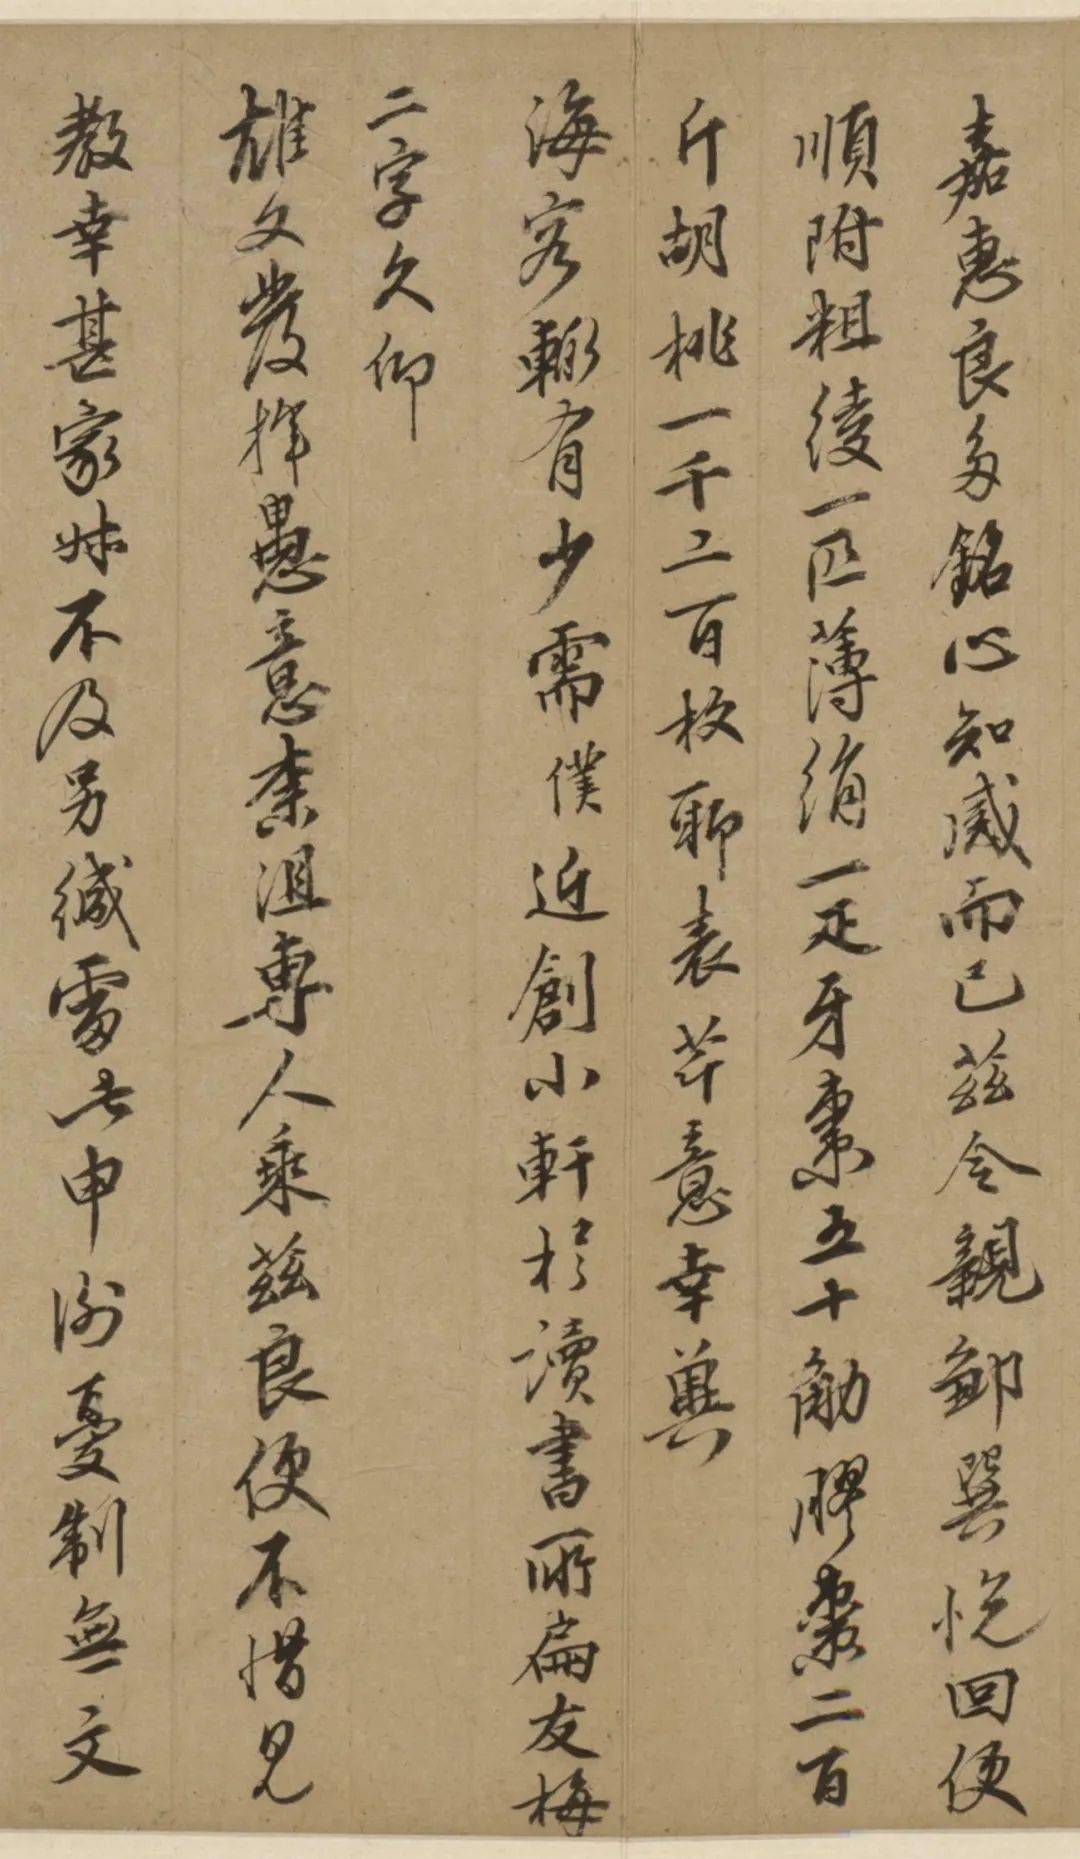 嘉惠良多銘心知感而已茲令親鄒巽悅回便
順附粗綾一匹薄絹一疋牙棗五十觔膠棗二百
斤胡桃一千二百枚聊表芹意幸與
海客輀有少需僕近創小軒於讀書所扁友梅
二字久仰
雄文發揮愚意柰沮專人乘茲良便不惜見
教幸甚家妹不及另緘雷此申謝憂制無文